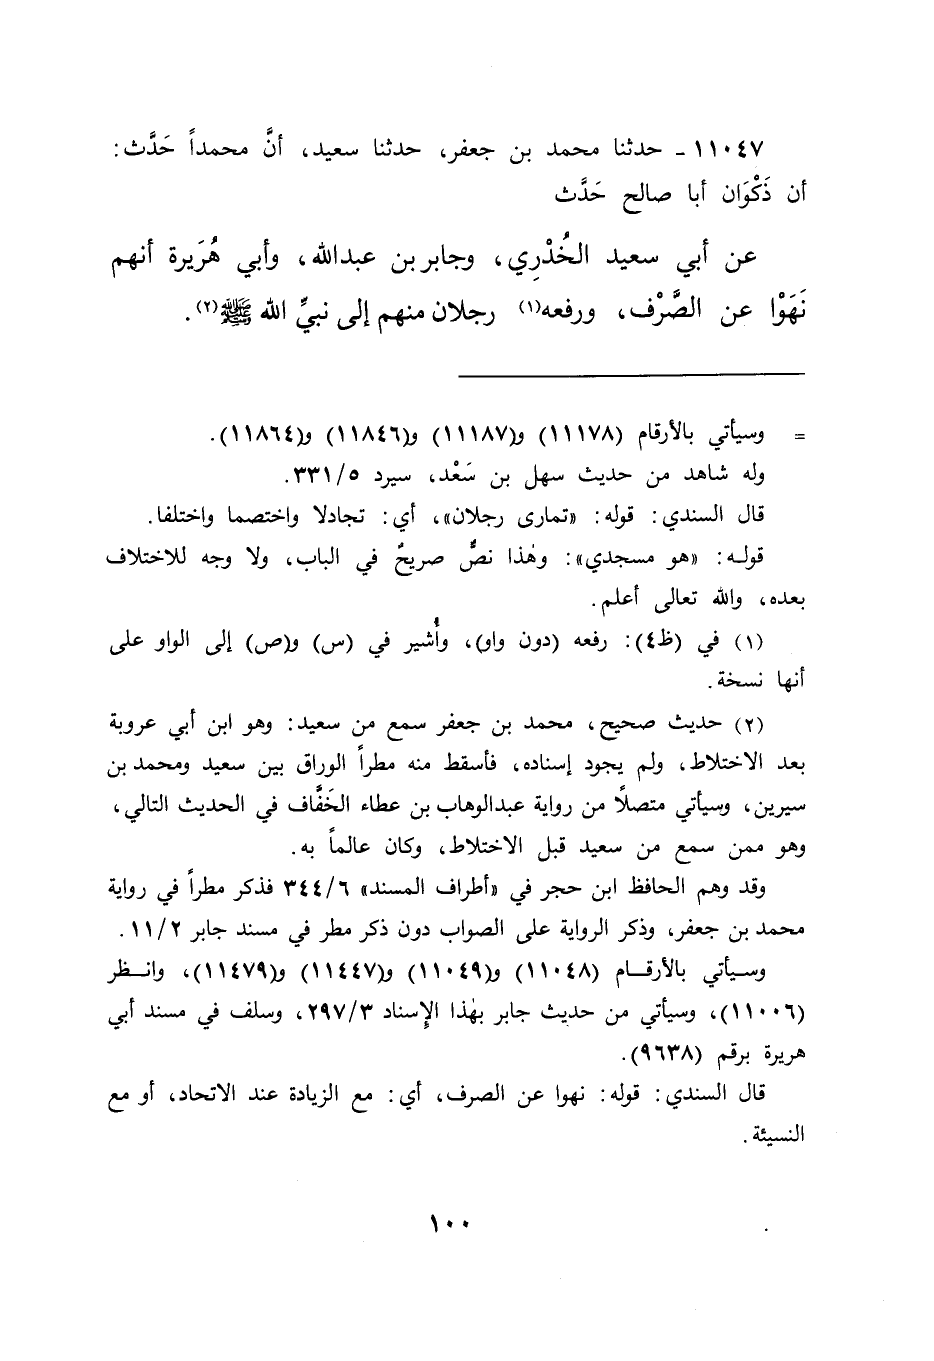 ١١٠٤٧ ـ حدثنا محمد بن جعفر، حدثنا سعيد، أنَّ محمداً حَدَّث:
أن ذَكْوَان أبا صالح حَدَّث
عن أبي سعيد الخُدْرِي، وجابر بن عبدالله، وأبي هُرَيرة أنهم
نَهَوْا عن الصَّرْف، ورفعه(١) رجلان منهم إلى نبيِّ الله ﷺ(٢).
= وسيأتي بالأرقام (١١١٧٨) و(١١١٨٧) و(١١٨٤٦) و(١١٨٦٤).
وله شاهد من حديث سهل بن سَعْد، سيرد ٣٣١/٥.
قال السندي: قوله: «تمارى رجلان»، أي: تجادلا واختصما واختلفا.
قولـه: «هو مسجدي»: وهٰذا نصٌّ صريحٌ في الباب، ولا وجه للاختلاف
بعده، والله تعالى أعلم.
(١) في (ظ٤): رفعه (دون واو)، وأُشير في (س) و(ص) إلى الواو على
أنها نسخة.
(٢) حديث صحيح، محمد بن جعفر سمع من سعيد: وهو ابن أبي عروبة
بعد الاختلاط، ولم يجود إسناده، فأسقط منه مطراً الوراق بين سعيد ومحمد بن
سيرين، وسيأتي متصلاً من رواية عبدالوهاب بن عطاء الخَفَّاف في الحديث التالي،
وهو ممن سمع من سعيد قبل الاختلاط، وكان عالماً به.
وقد وهم الحافظ ابن حجر في «أطراف المسند» ٣٤٤/٦ فذكر مطراً في رواية
محمد بن جعفر، وذكر الرواية على الصواب دون ذكر مطر في مسند جابر ١١/٢.
وسـيأتي بالأرقـام (١١٠٤٨) و(١١٠٤٩) و(١١٤٤٧) و(١١٤٧٩)، وانـظر
(١١٠٠٦)، وسيأتي من حديث جابر بهٰذا الإسناد ٢٩٧/٣، وسلف في مسند أبي
هريرة برقم (٩٦٣٨).
قال السندي: قوله: نهوا عن الصرف، أي: مع الزيادة عند الاتحاد، أو مع
النسيئة.
١٠٠